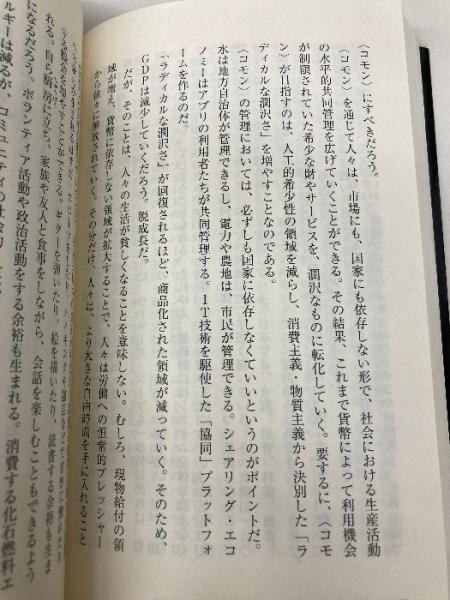 〈コモン〉にすべきだろう。
〈コモン〉を通じて人々は、市場にも、国家にも依存しない形で、社会における生産活動
の水平的共同管理を広げていくことができる。その結果、これまで貨幣によって利用機会
が制限されていた希少な財やサービスを、潤沢なものに転化していく。要するに、〈コモ
ン〉が目指すのは、人工的希少性の領域を減らし、消費主義・物質主義から決別した「ラ
ディカルな潤沢さ」を増やすことなのである。
〈コモン〉の管理においては、必ずしも国家に依存しなくていいというのがポイントだ。
水は地方自治体が管理できるし、電力や農地は、市民が管理できる。シェアリング・エコ
ノミーはアプリの利用者たちが共同管理する。IT技術を駆使した「協同」プラットフォ
ームを作るのだ。
「ラディカルな潤沢さ」が回復されるほど、商品化された領域が減っていく。そのため、
GDPは減少していくだろう。脱成長だ。
だが、そのことは、人々の生活が貧しくなることを意味しない。むしろ、現物給付の領
域が増え、貨幣に依存しない領域が拡大することで、人々は労働への恒常的プレッシャー
から徐々に解放されていく。その分だけ、人々は、より大きな自由時間を手に入れること
ができる。
ギターを弾いたり、絵を描いたり、読書する余裕も生ま
れる。自ら厨房に立ち、家族や友人と食事をしながら、会話を楽しむこともできるよう
になるだろう。ボランティア活動や政治活動をする余裕も生まれる。消費する化石燃料エ
ネルギーは減るが、コミュニティの社会的